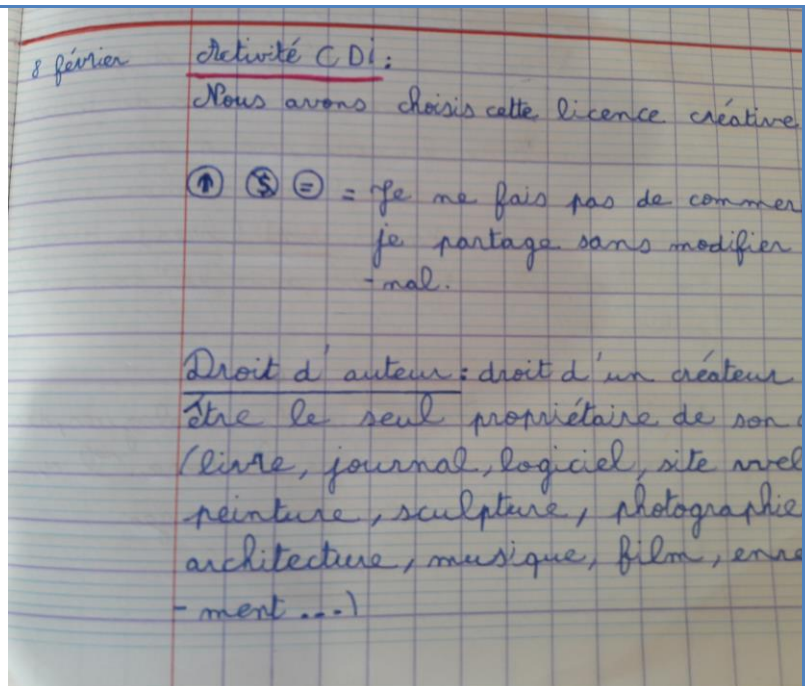 8 février
Activité CDI :
Nous avons choisis cette licence créative
= Je ne fais pas de commer
je partage sans modifier
-nal.
Droit d'auteur : droit d'un créateur
être le seul propriétaire de son
(livre, journal, logiciel, site
peinture, sculpture, photographie
architecture, musique, film, enre
-ment ...)